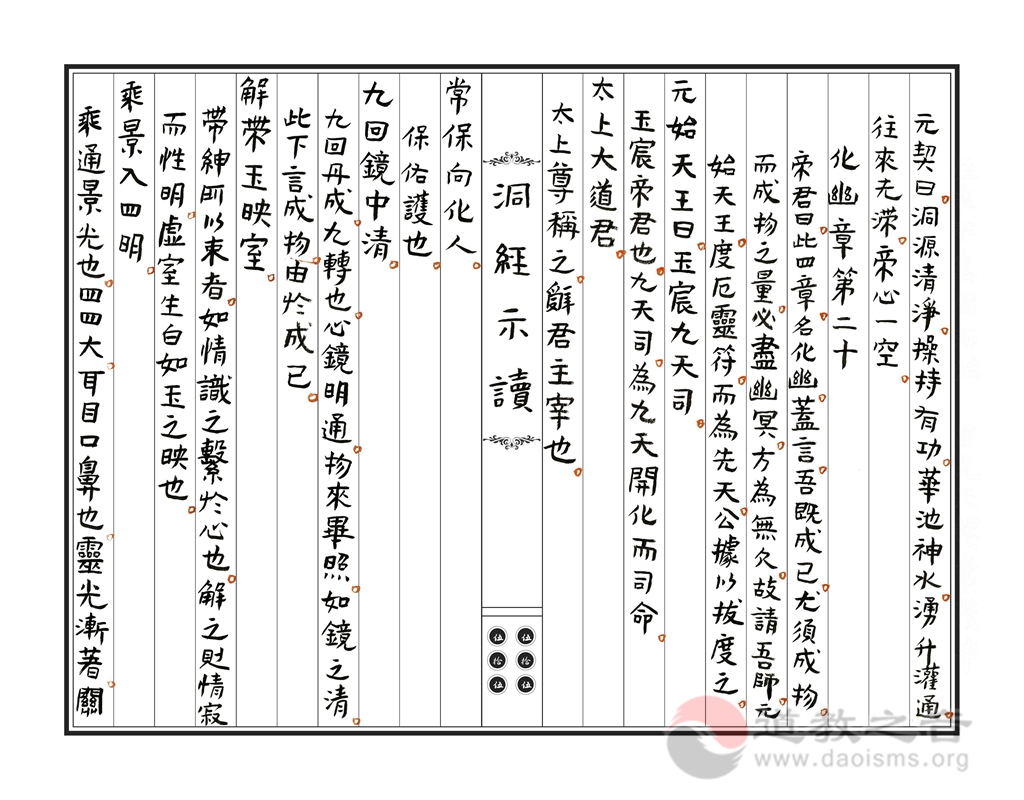 元契曰洞源清淨操持有功華池神水湧升灌通
往來无滞帝心一空
化幽章第二十
帝君曰此四章名化幽蓋言吾既成已尤須成物
而成物之量必盡幽冥方為無欠故請吾師元
始天王度厄靈符而為先天公據以拔度之
元始天王曰玉宸九天司
玉宸帝君也九天司為九天開化而司命
太上大道君
太上尊稱之辭君主宰也
洞經示讀
伍拾伍
伍拾伍
常保向化人
保佑護也
九回鏡中清
九回丹成九轉也心鏡明通物來畢照如鏡之清
此下言成物由於成已
解带玉映室
帶紳所以束者如情識之繫於心也解之則情寂
而性明虛室生白如玉之映也
乘景入四明
乘通景光也四四大耳目口鼻也靈光漸著關
道教之音
www.daoisms.org